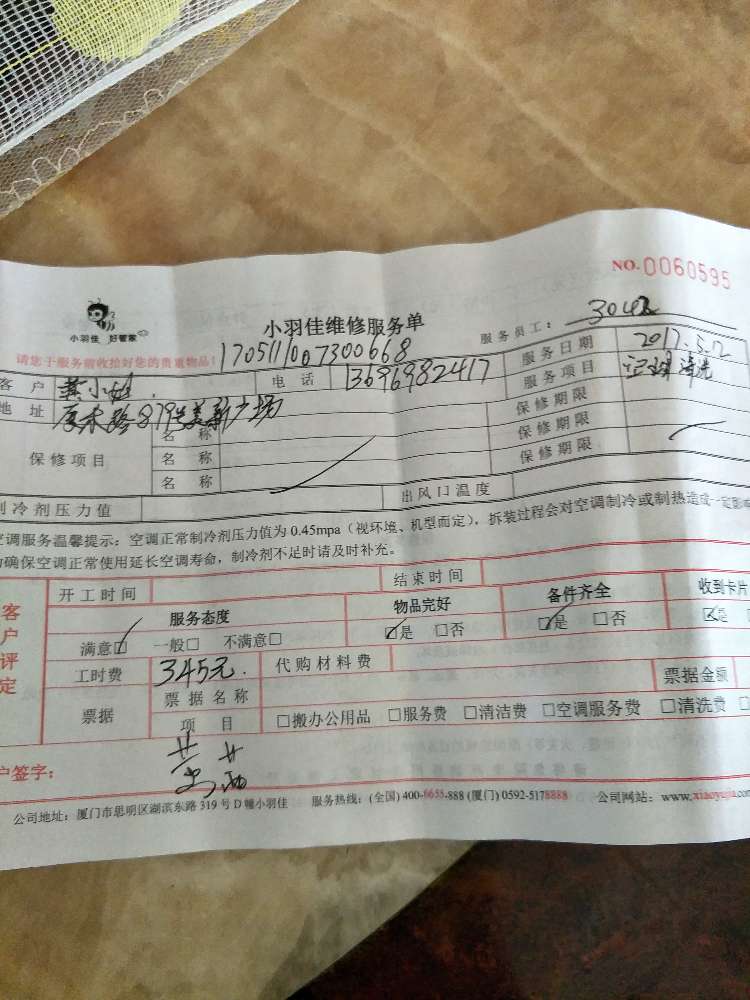 NO.0060595
小羽佳 好管家
小羽佳维修服务单
服务员工：3042
请您于服务前收拾好您的贵重物品！
170511/0067300668
服务日期 2017.5.12
客 户 小姐 电 话 13696982417 服务项目 空调清洗
地 址 厦禾路879号美新广场 保修期限
保修项目
名 称 保修期限
名 称 保修期限
名 称
制冷剂压力值 出风口温度
空调服务温馨提示：空调正常制冷剂压力值为 0.45mpa（视环境、机型而定），拆装过程会对空调制冷或制热造成一定影响
为确保空调正常使用延长空调寿命，制冷剂不足时请及时补充。
客户评定
开工时间 结束时间
服务态度 物品完好 备件齐全 收到卡片
满意☑ 一般□ 不满意□ ☑是 □否 ☑是 □否 ☑是
工时费 345元. 代购材料费
票据 票据名称 票据金额
项 目 □搬办公用品 □服务费 □清洁费 □空调服务费 □清洗费
户签字：
公司地址：厦门市思明区湖滨东路 319 号 D 幢小羽佳 服务热线：(全国) 400-6655-888 (厦门) 0592-5178888 公司网站：www.xiaoyujia.com